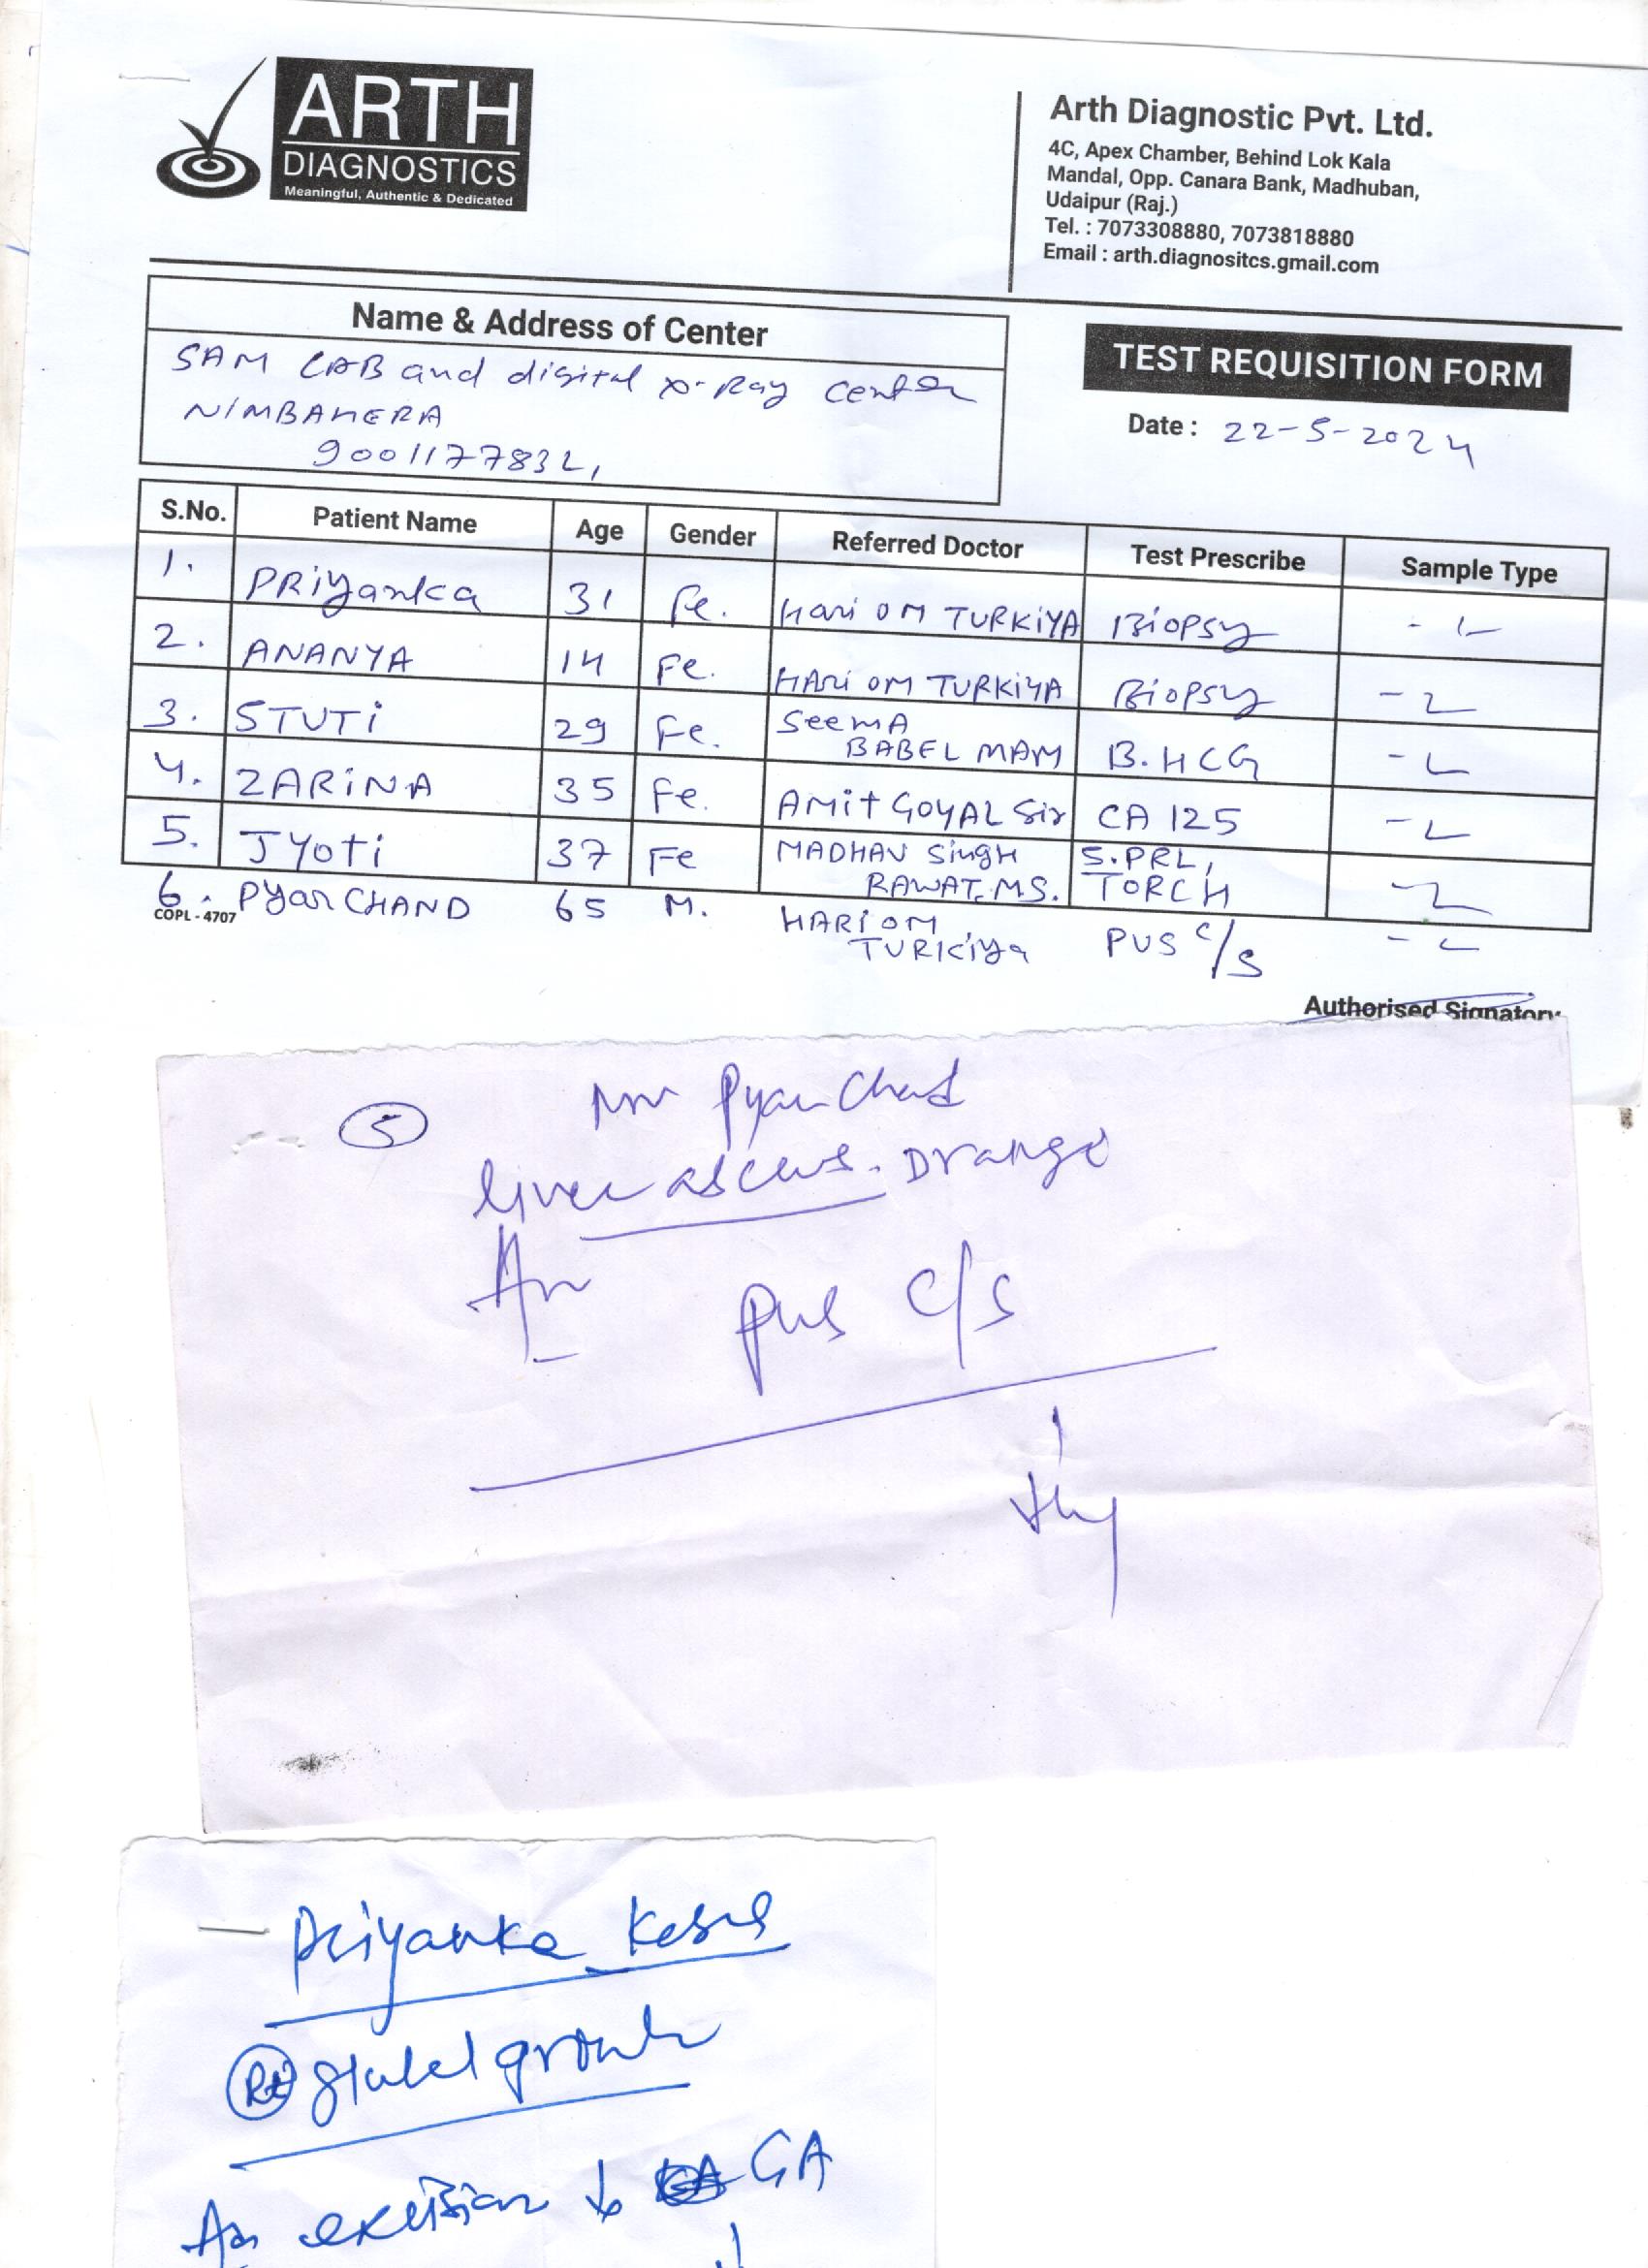 ARTH
DIAGNOSTICS
Meaningful, Authentic & Dedicated
Arth Diagnostic Pvt. Ltd.
4C, Apex Chamber, Behind Lok Kala
Mandal, Opp. Canara Bank, Madhuban,
Udaipur (Raj.)
Tel. : 7073308880, 7073818880
Email : arth.diagnositcs.gmail.com
Name & Address of Center
SAM LAB and digital x-Ray Center
NIMBAHERA
9001177832,
TEST REQUISITION FORM
Date : 22-5-2024
S.No. Patient Name Age Gender Referred Doctor Test Prescribe Sample Type
1. PRiyanka 31 Fe. Hari OM TURKiYA Biopsy
2. ANANYA 14 Fe. HARi OM TURKiYA Biopsy
3. STUTi 29 Fe. SeemA BABEL MAM B.HCG
4. ZARiNA 35 Fe. AMit GOYAL Sir CA 125
5. Jyoti 37 Fe MADHAV Singh RAWAT. MS. S.PRL, TORCH
6. PyarCHAND 65 M. HARiOM TURKiya PUS C/S
COPL - 4707
Authorised Signatory
5
Pyar Chand
liver
pus C/S
Priyanka
Rt growth
excision GA